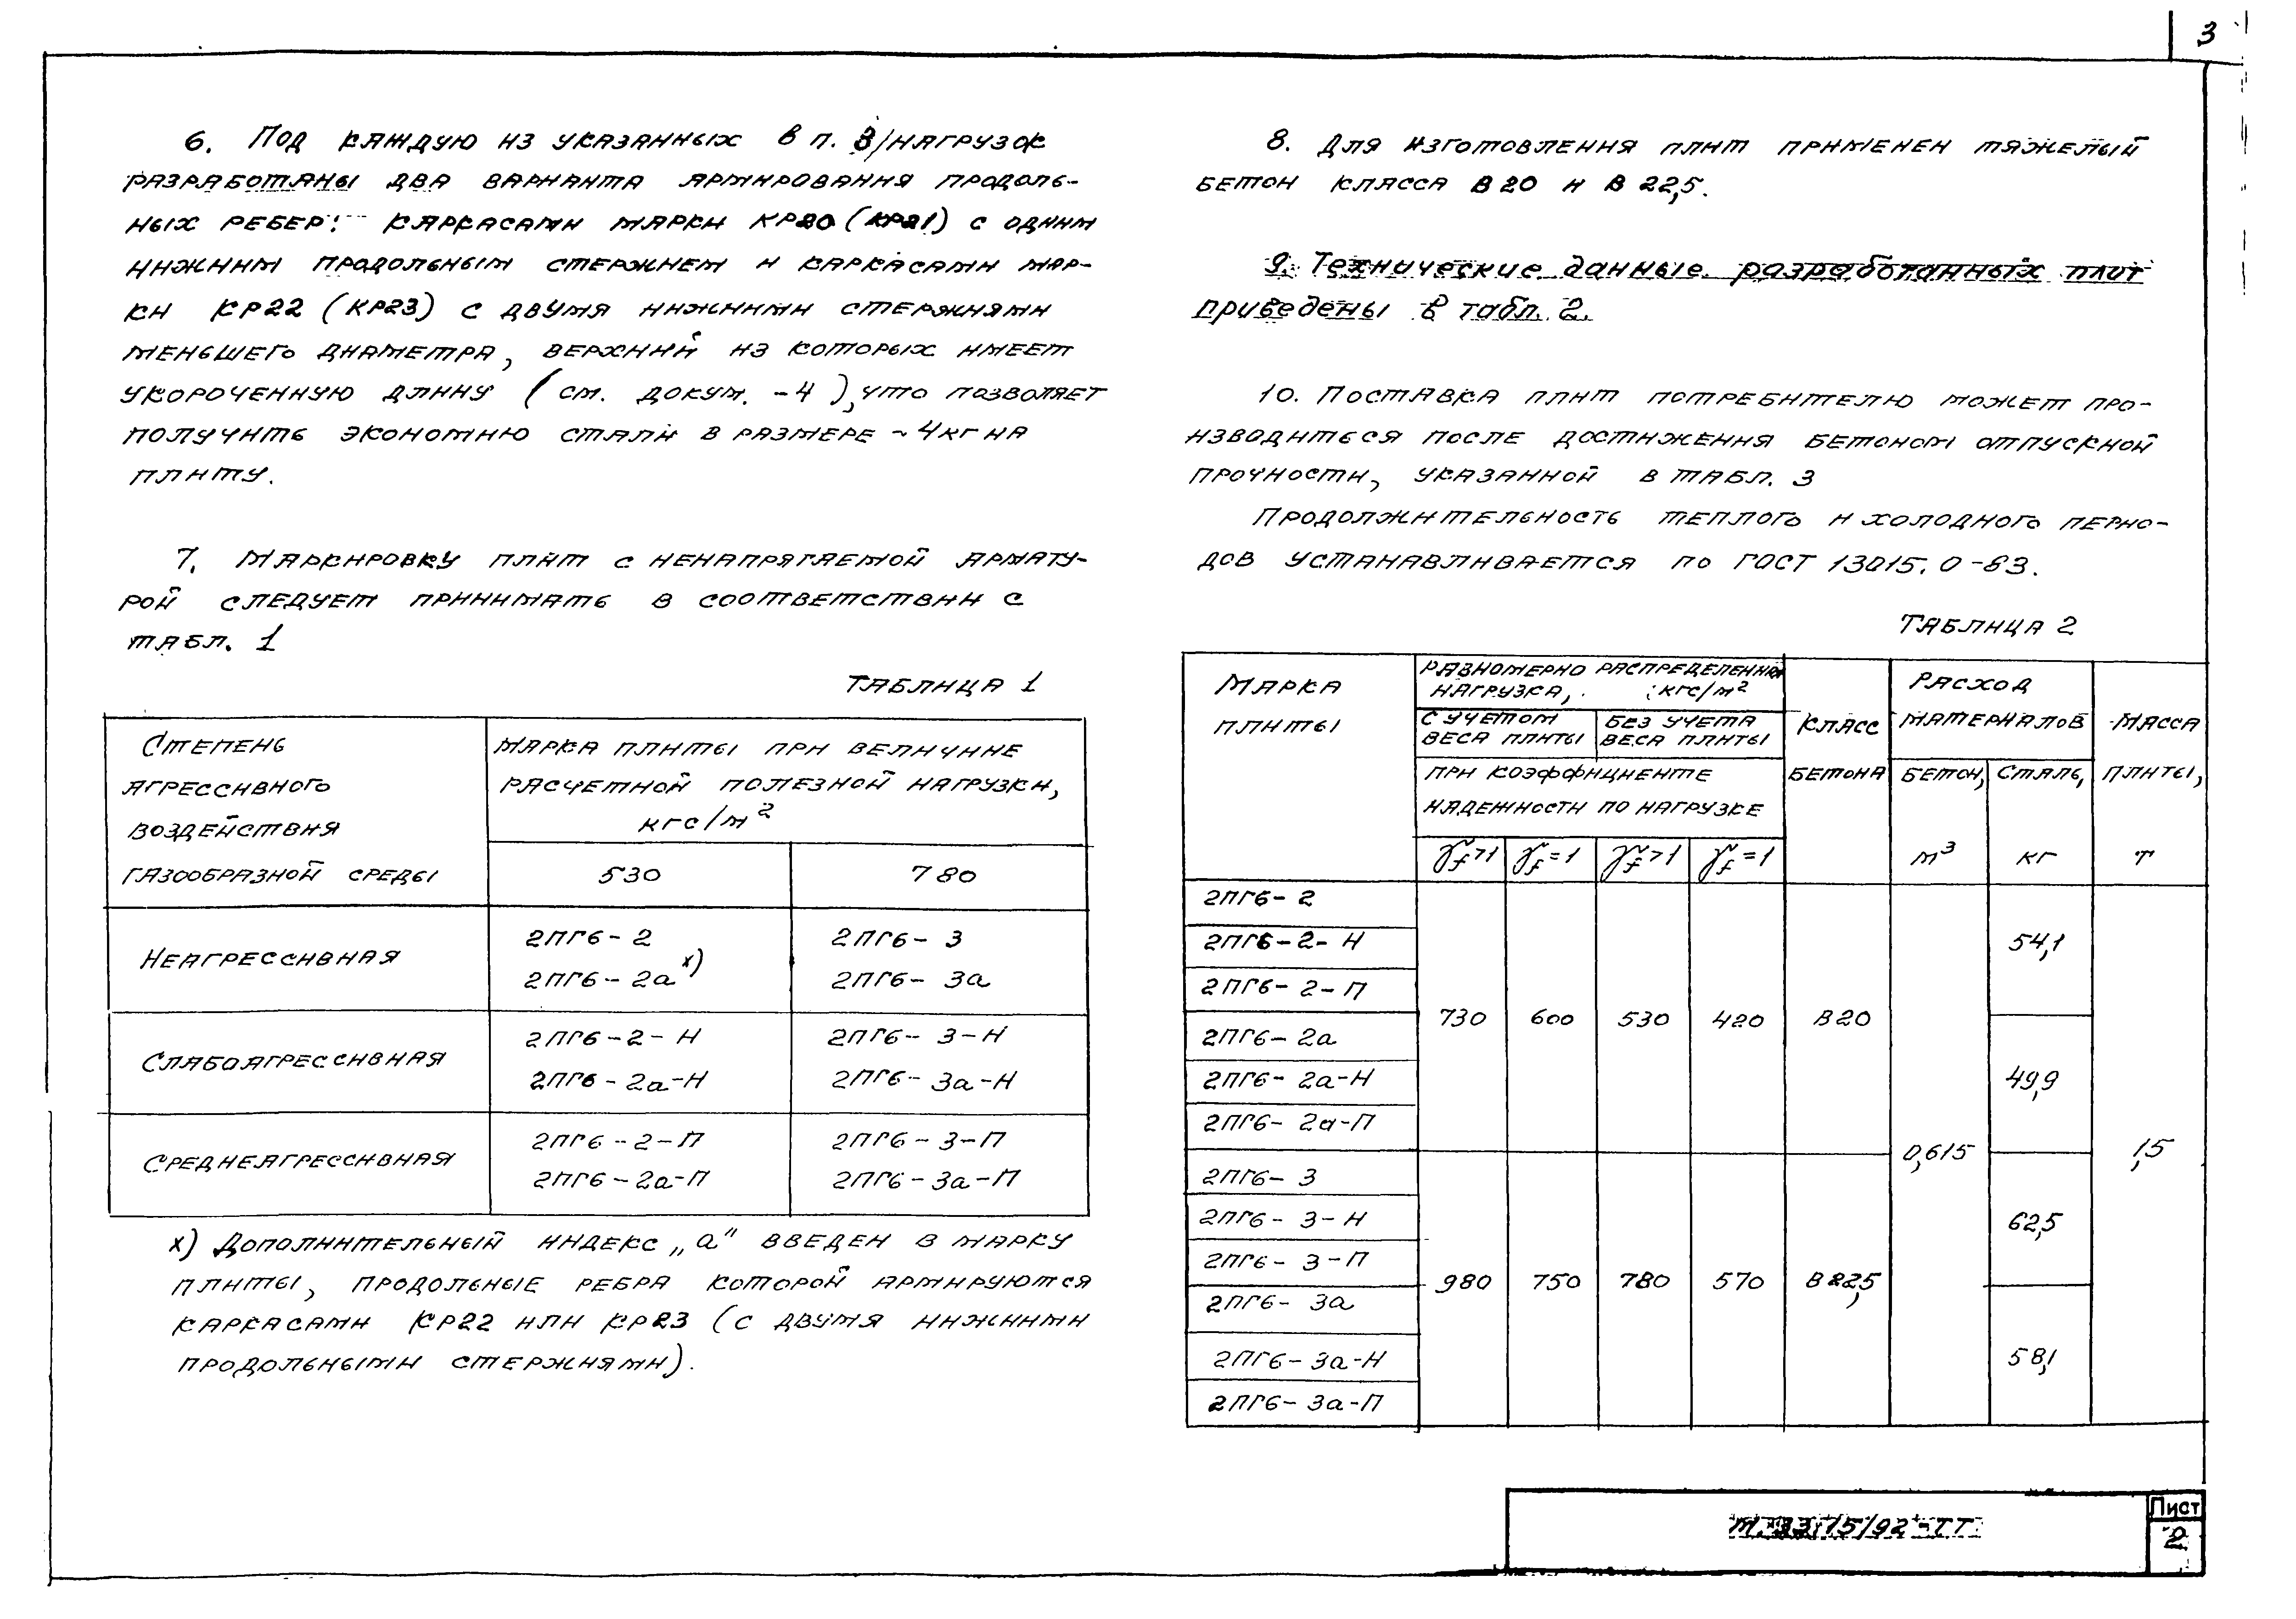 3
6. Под каждую из указанных в п. 3/нагрузок
разработаны два варианта армирования продоль-
ных ребер: каркасами марки КР20 (КР21) с одним
нижним продольным стержнем и каркасами мар-
ки КР22 (КР23) с двумя нижними стержнями
меньшего диаметра, верхний из которых имеет
укороченную длину (см. докум. -4), что позволяет
получить экономию стали в размере ~ 4 кг на
плиту.
7. Маркировку плит с ненапрягаемой армату-
рой следует принимать в соответствии с
табл. 1
Таблица 1
Степень
агрессивного
воздействия
газообразной среды
Марка плиты при величине
расчетной полезной нагрузки,
кгс/м²
530 780
Неагрессивная
2ПГ6-2 2ПГ6-3
2ПГ6-2а х) 2ПГ6-3а
Слабоагрессивная
2ПГ6-2-Н 2ПГ6-3-Н
2ПГ6-2а-Н 2ПГ6-3а-Н
Среднеагрессивная
2ПГ6-2-П 2ПГ6-3-П
2ПГ6-2а-П 2ПГ6-3а-П
х) Дополнительный индекс „а" введен в марку
плиты, продольные ребра которой армируются
каркасами КР22 или КР23 (с двумя нижними
продольными стержнями).
8. Для изготовления плит применен тяжелый
бетон класса В20 и В22,5.
9. Технические данные разработанных плит
приведены в табл. 2.
10. Поставка плит потребителю может про-
изводиться после достижения бетоном отпускной
прочности, указанной в табл. 3
Продолжительность теплого и холодного перио-
дов устанавливается по ГОСТ 13015.0-83.
Таблица 2
Марка
плиты
Равномерно распределенная
нагрузка, кгс/м²
с учетом
веса плиты
без учета
веса плиты
при коэффициенте
надежности по нагрузке
γf>1 γf=1 γf>1 γf=1
Класс
бетона
Расход
материалов
Бетон,
м³
Сталь,
кг
Масса
плиты,
т
2ПГ6-2
2ПГ6-2-Н
2ПГ6-2-П
2ПГ6-2а
2ПГ6-2а-Н
2ПГ6-2а-П
2ПГ6-3
2ПГ6-3-Н
2ПГ6-3-П
2ПГ6-3а
2ПГ6-3а-Н
2ПГ6-3а-П
730 600 530 420 В20
980 750 780 570 В22,5
0,615
54,1
49,9
62,5
58,1
1,5
Лист
2